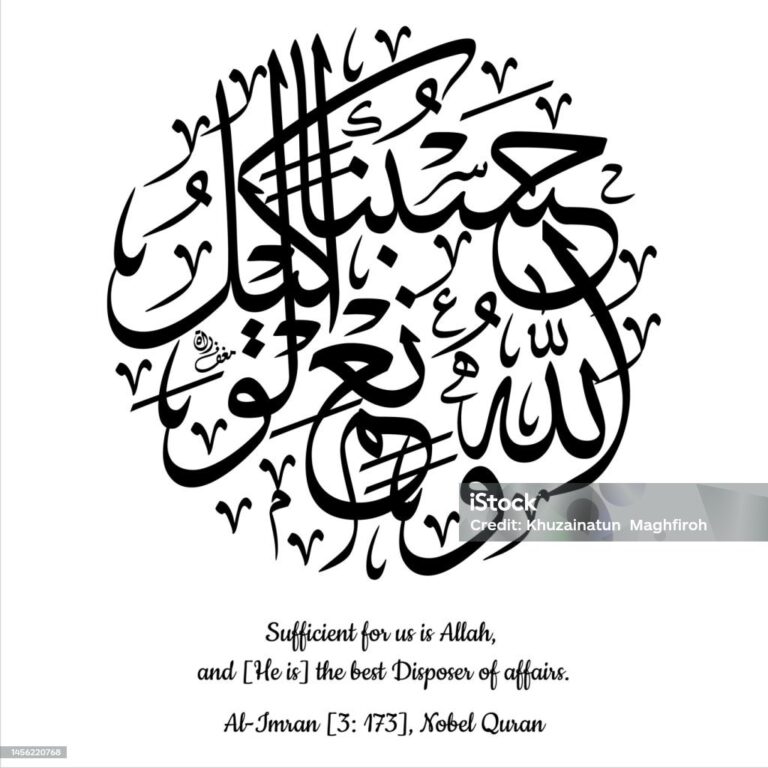 حسبنا الله ونعم الوكيل
iStock
Credit: Khuzainatun Maghfiroh
Sufficient for us is Allah,
and [He is] the best Disposer of affairs.
Al-Imran [3: 173], Nobel Quran
1456220768